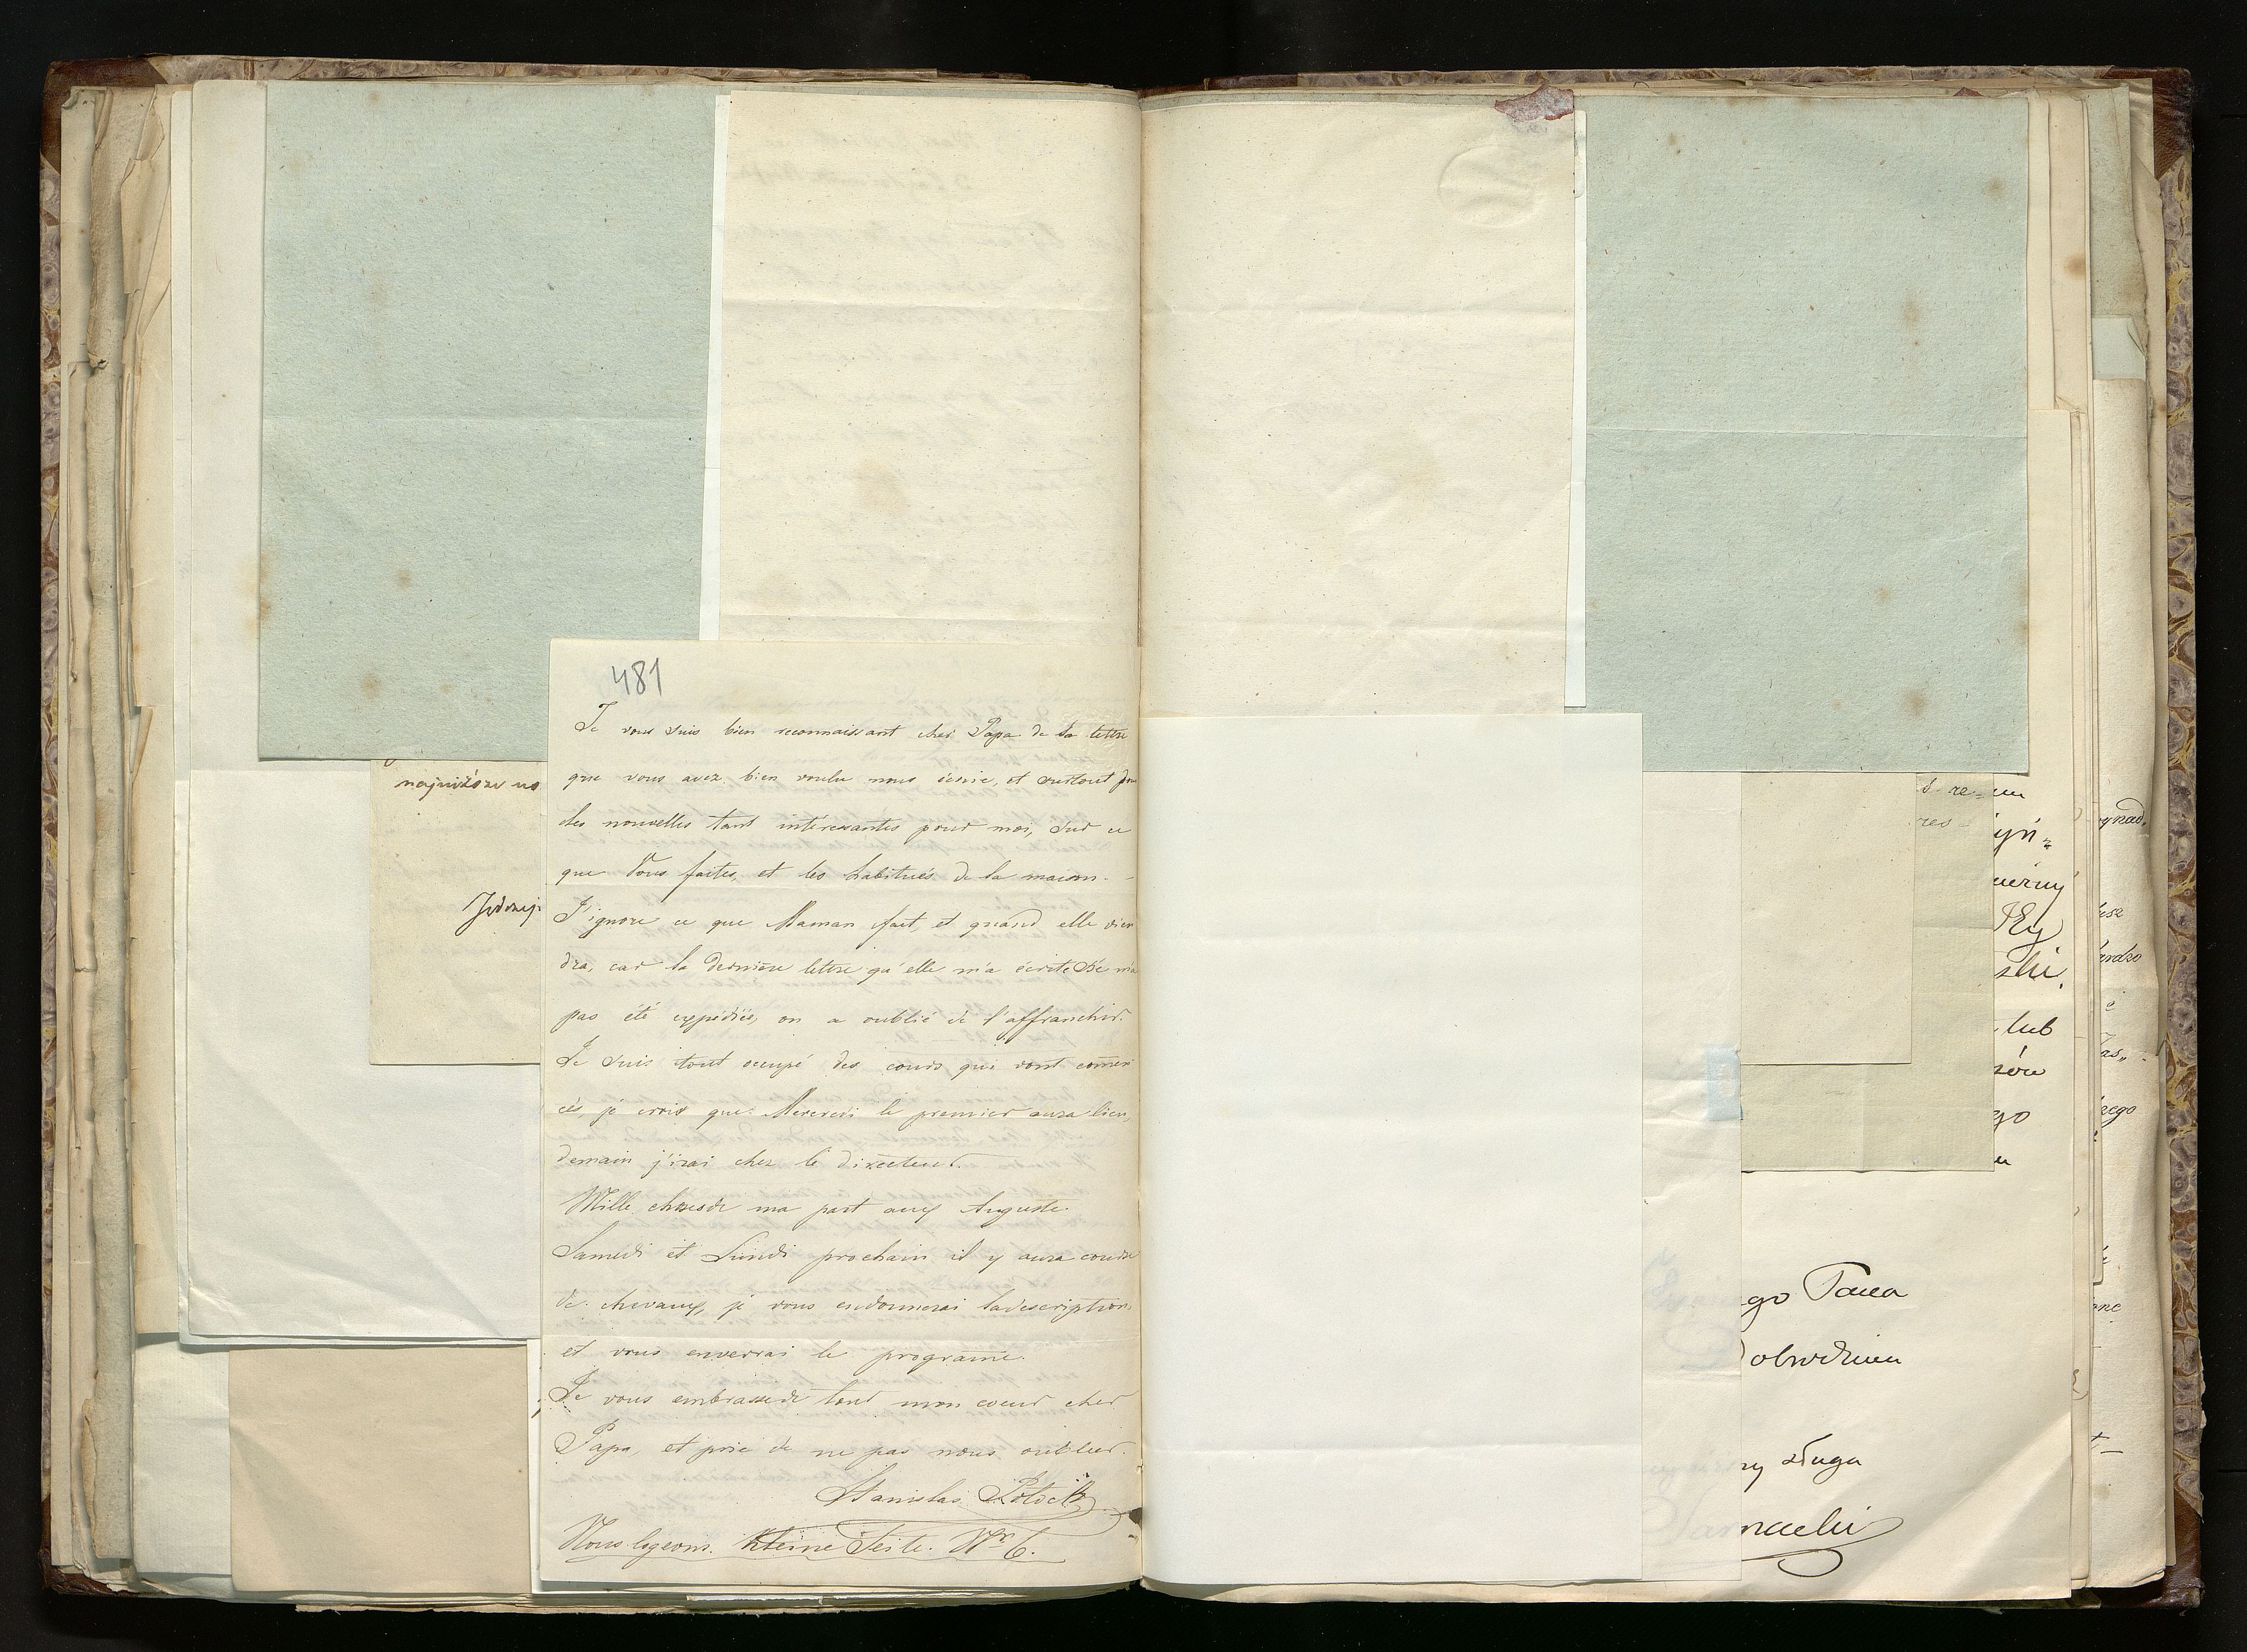 481
Je vous suis bien reconnaissant cher Papa de la lettre
que vous avez bien voulu nous écrire, et surtout pour
des nouvelles tant intéressantes pour moi, sur ce
que Vous faites, et les habitués de la maison. -
J'ignore ce que Maman fait, et quand elle vien
dra, car la dernière lettre qu'elle m'a écrite n'a
pas été expédiée, on a oublié de l'affranchir.
Je suis tout occupé des cours qui vont comen
cés, je crois que Mercredi le premier aura lieu,
demain j'irai chez le directeur.
Mille choses de ma part aux Auguste.
Samedi et Lundi prochain il y aura course
de chevaux, je vous en donnerai la description,
et vous enverrai le programe.
Je vous embrasse de tout mon coeur cher
Papa, et prie de ne pas nous oublier.
Stanislas Potocki
Nous logeons. Kleine Seite. Nr 6.
go Pana
Dobrodzieja
ry sługa
lub
go